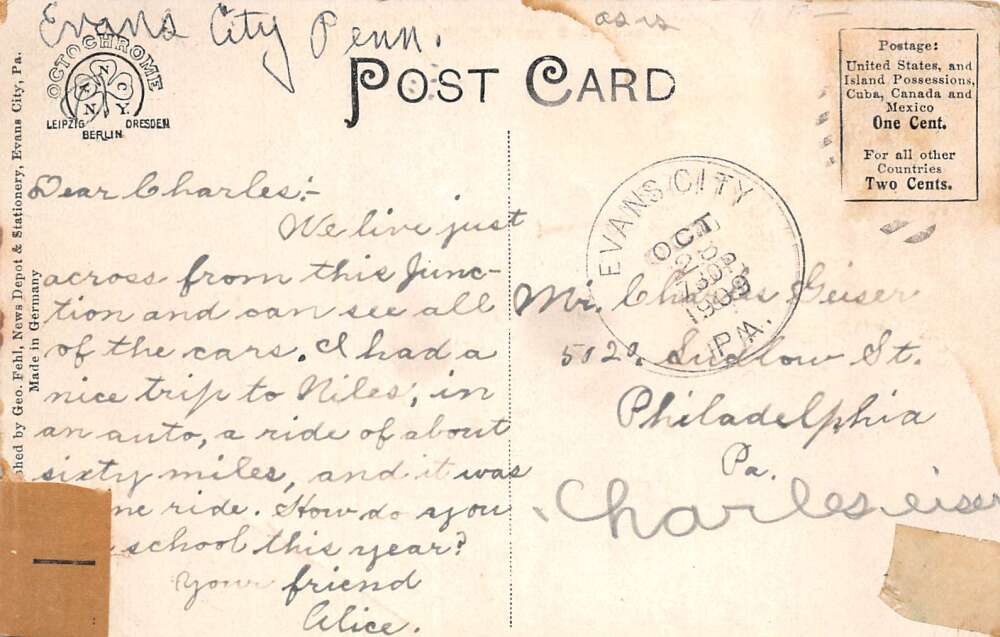 Evans City Penn.
as is
OCTOCHROME
N
N C
N Y.
LEIPZIG DRESDEN
BERLIN
POST CARD
Postage:
United States, and
Island Possessions,
Cuba, Canada and
Mexico
One Cent.
For all other
Countries
Two Cents.
hed by Geo. Fehl, News Depot & Stationery, Evans City, Pa.
Made in Germany
EVANS CITY
OCT
28
730P
1909
PA.
Dear Charles:-
We live just
across from this Junc-
tion and can see all
of the cars. I had a
nice trip to Niles, in
an auto, a ride of about
sixty miles, and it was
ne ride. How do you
school this year?
Your friend
Alice.
Mr. Charles Geiser
5020, Ludlow St.
Philadelphia
Pa.
Charles eiser